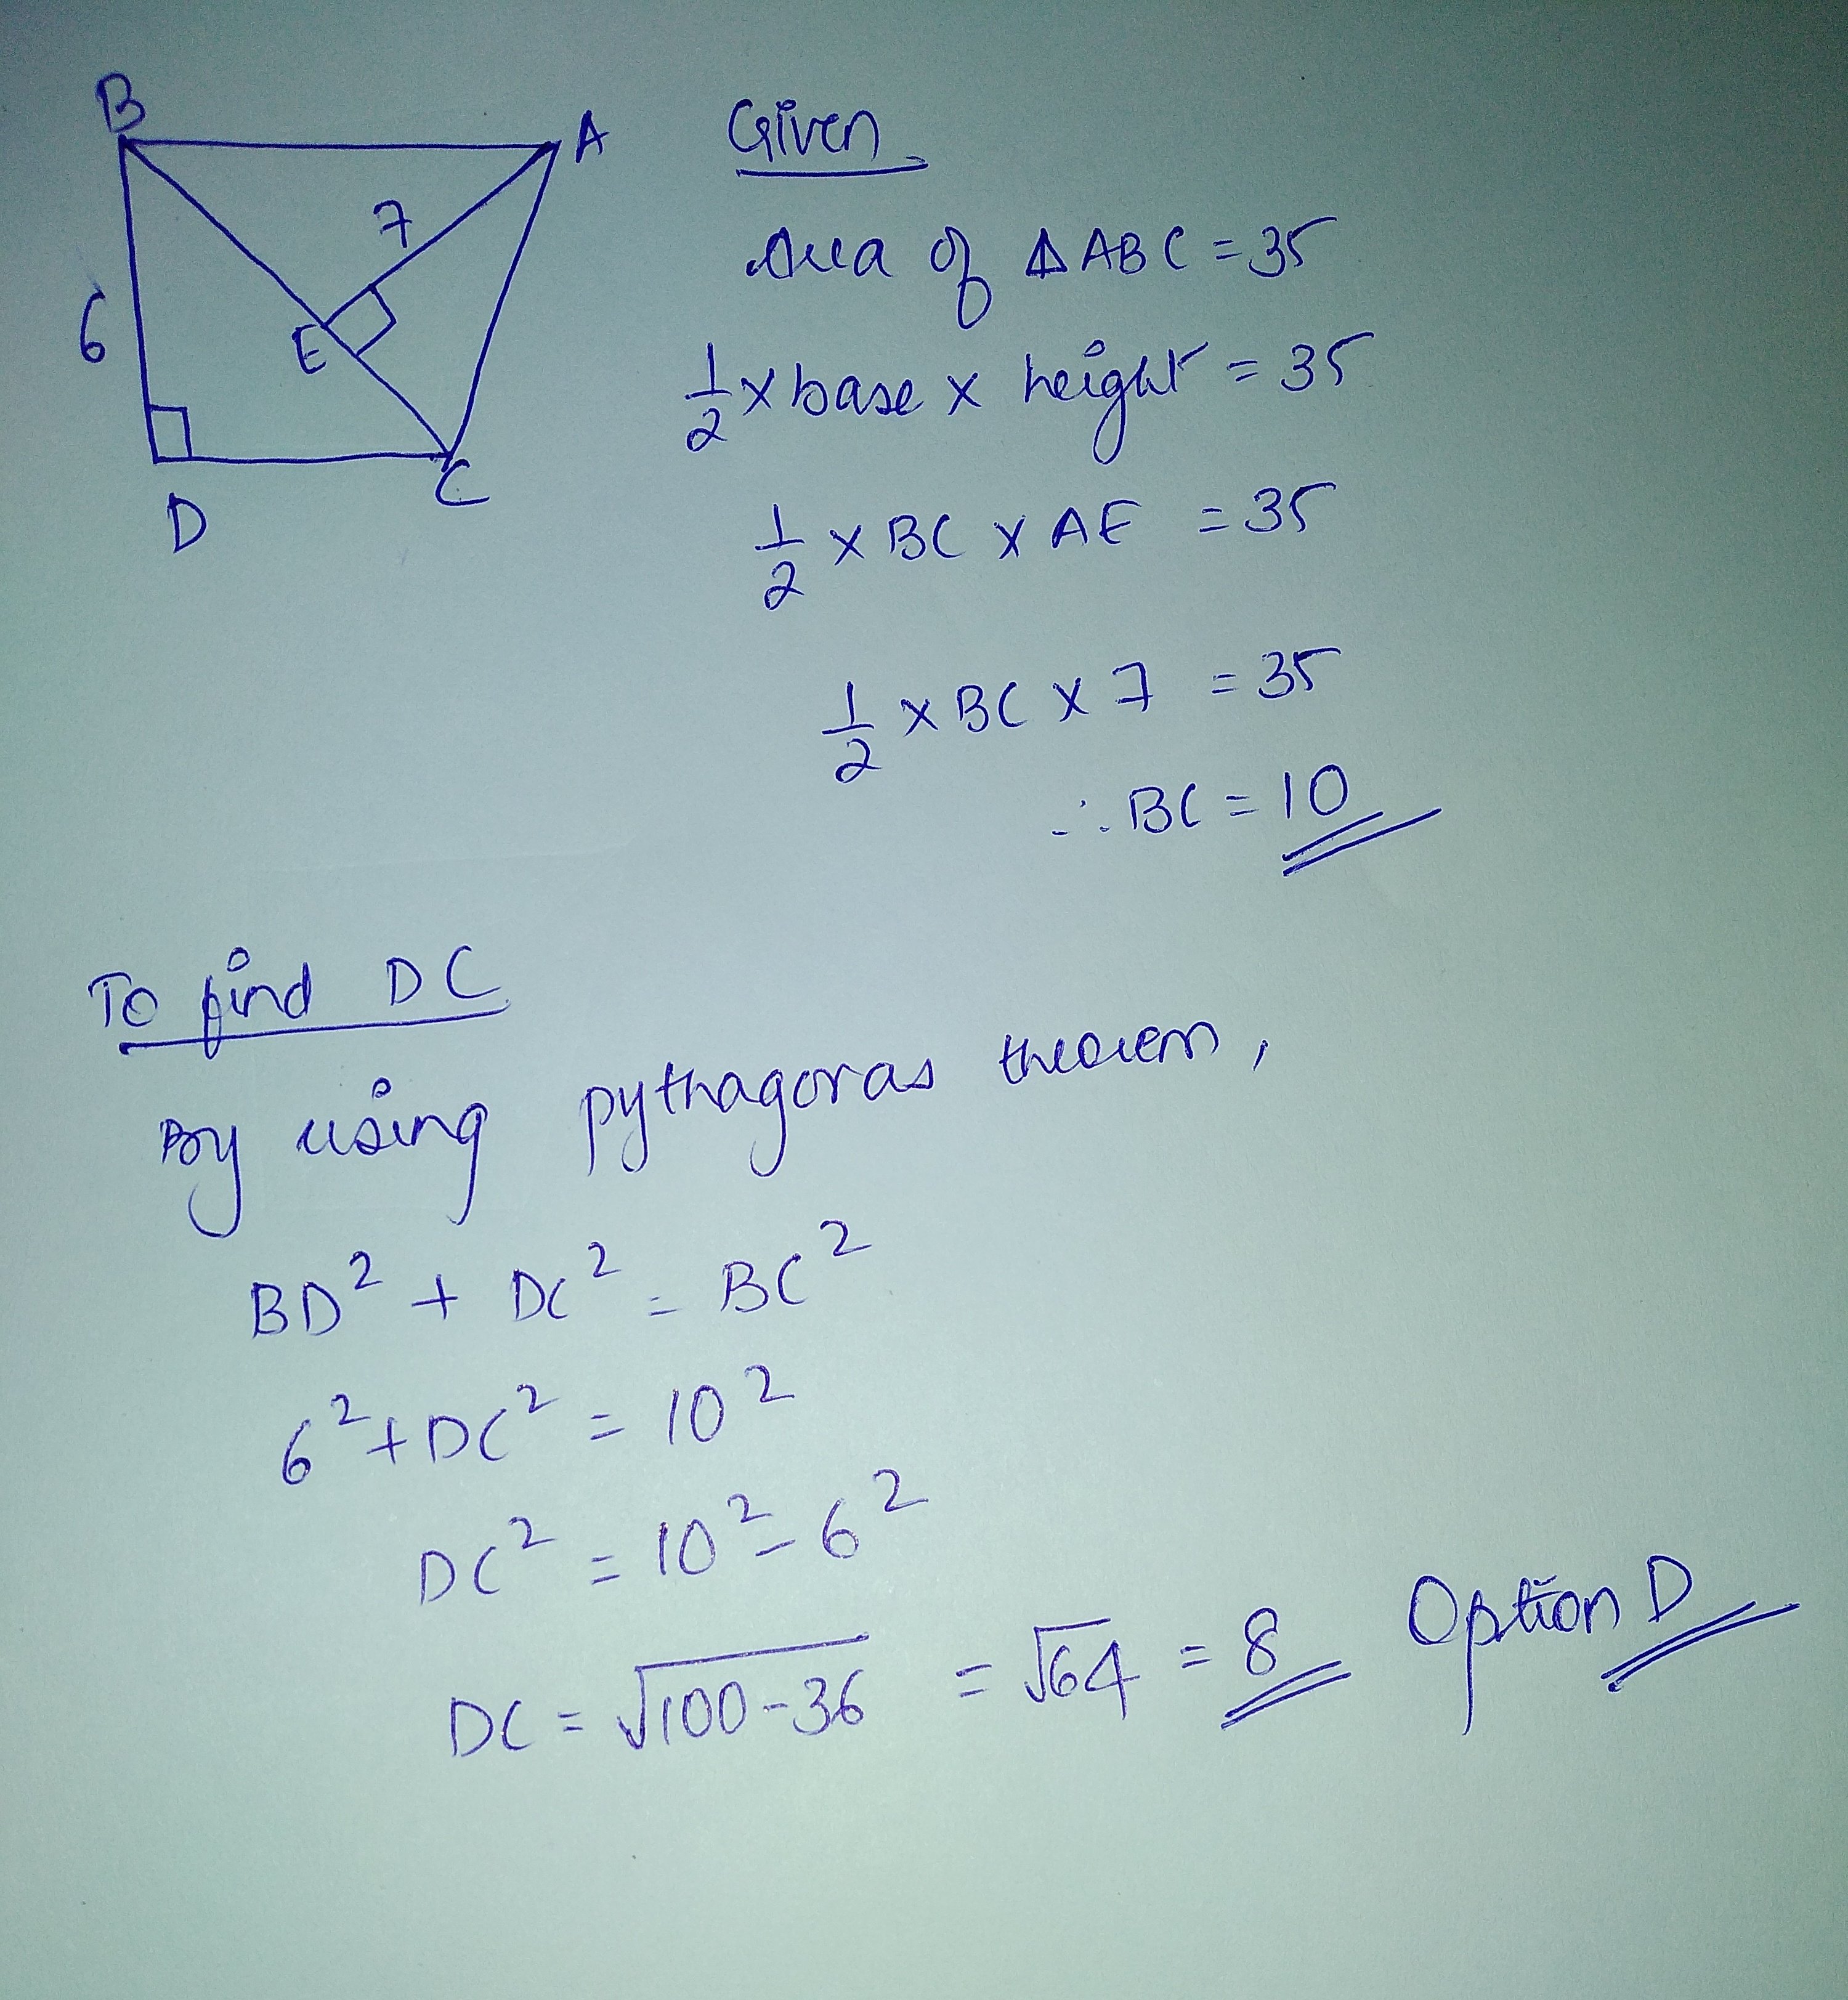 B
A
7
6
E
D
C
Given
Area of ΔABC = 35
1/2 × base × height = 35
1/2 × BC × AE = 35
1/2 × BC × 7 = 35
∴ BC = 10
To find DC
By using pythagoras theorem,
BD² + DC² = BC²
6² + DC² = 10²
DC² = 10² - 6²
DC = √100-36 = √64 = 8 Option D